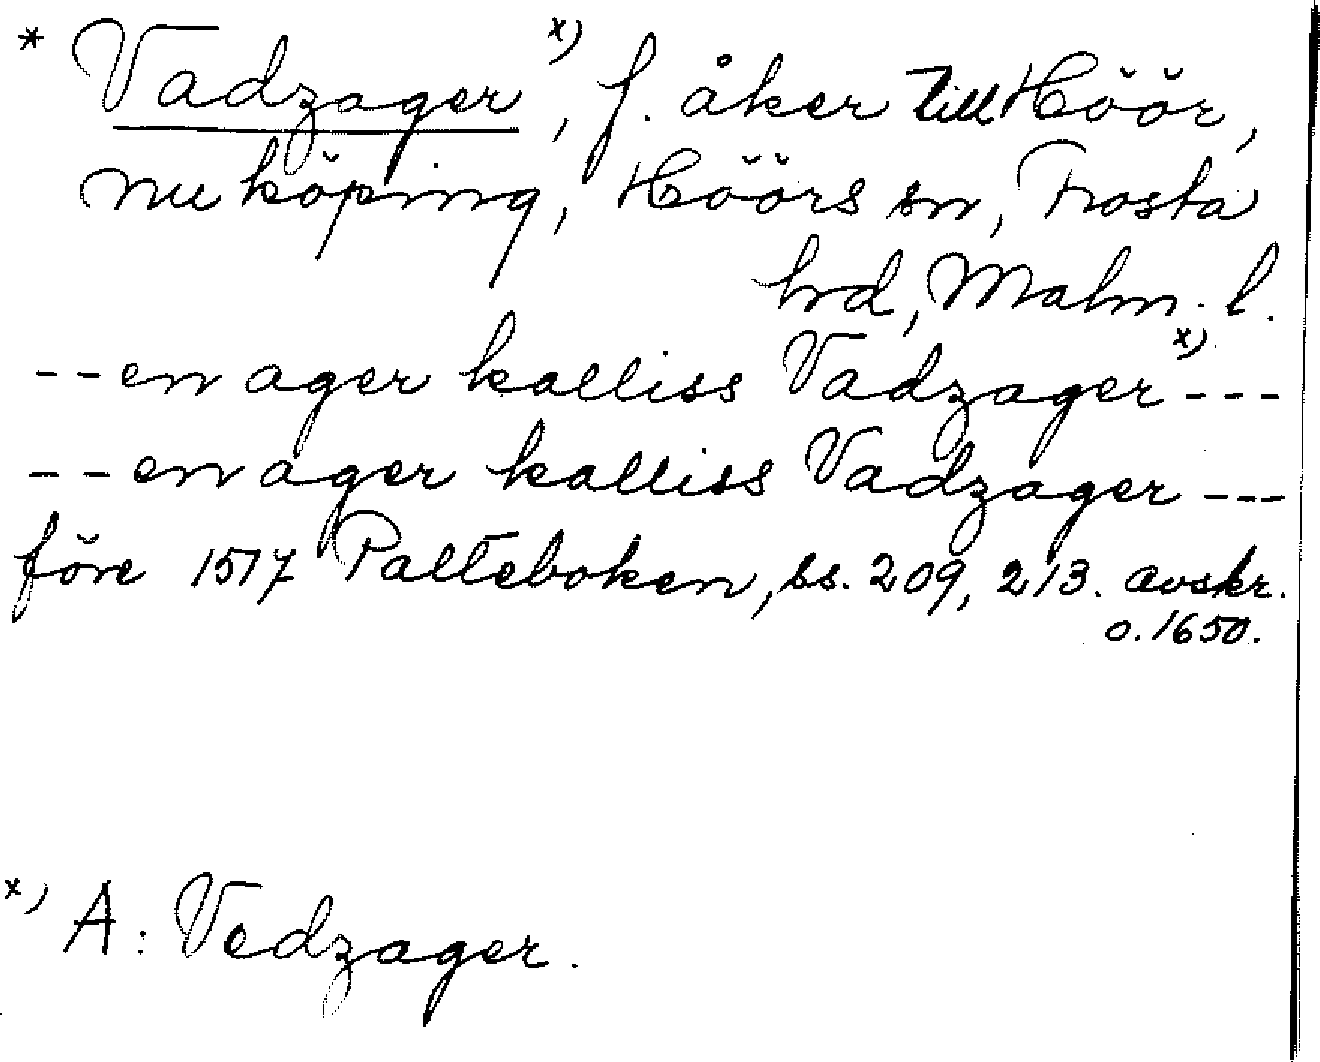 * Vadzager x), f. åker till Höör,
nu köping, Höörs sn, Frosta
hrd, Malm. l.
-- en ager kalliss Vadzager x) ---
-- en ager kalliss Vadzager ---
före 1517 Palteboken, ss. 209, 213. avskr.
o. 1650.
x) A: Vedzager.